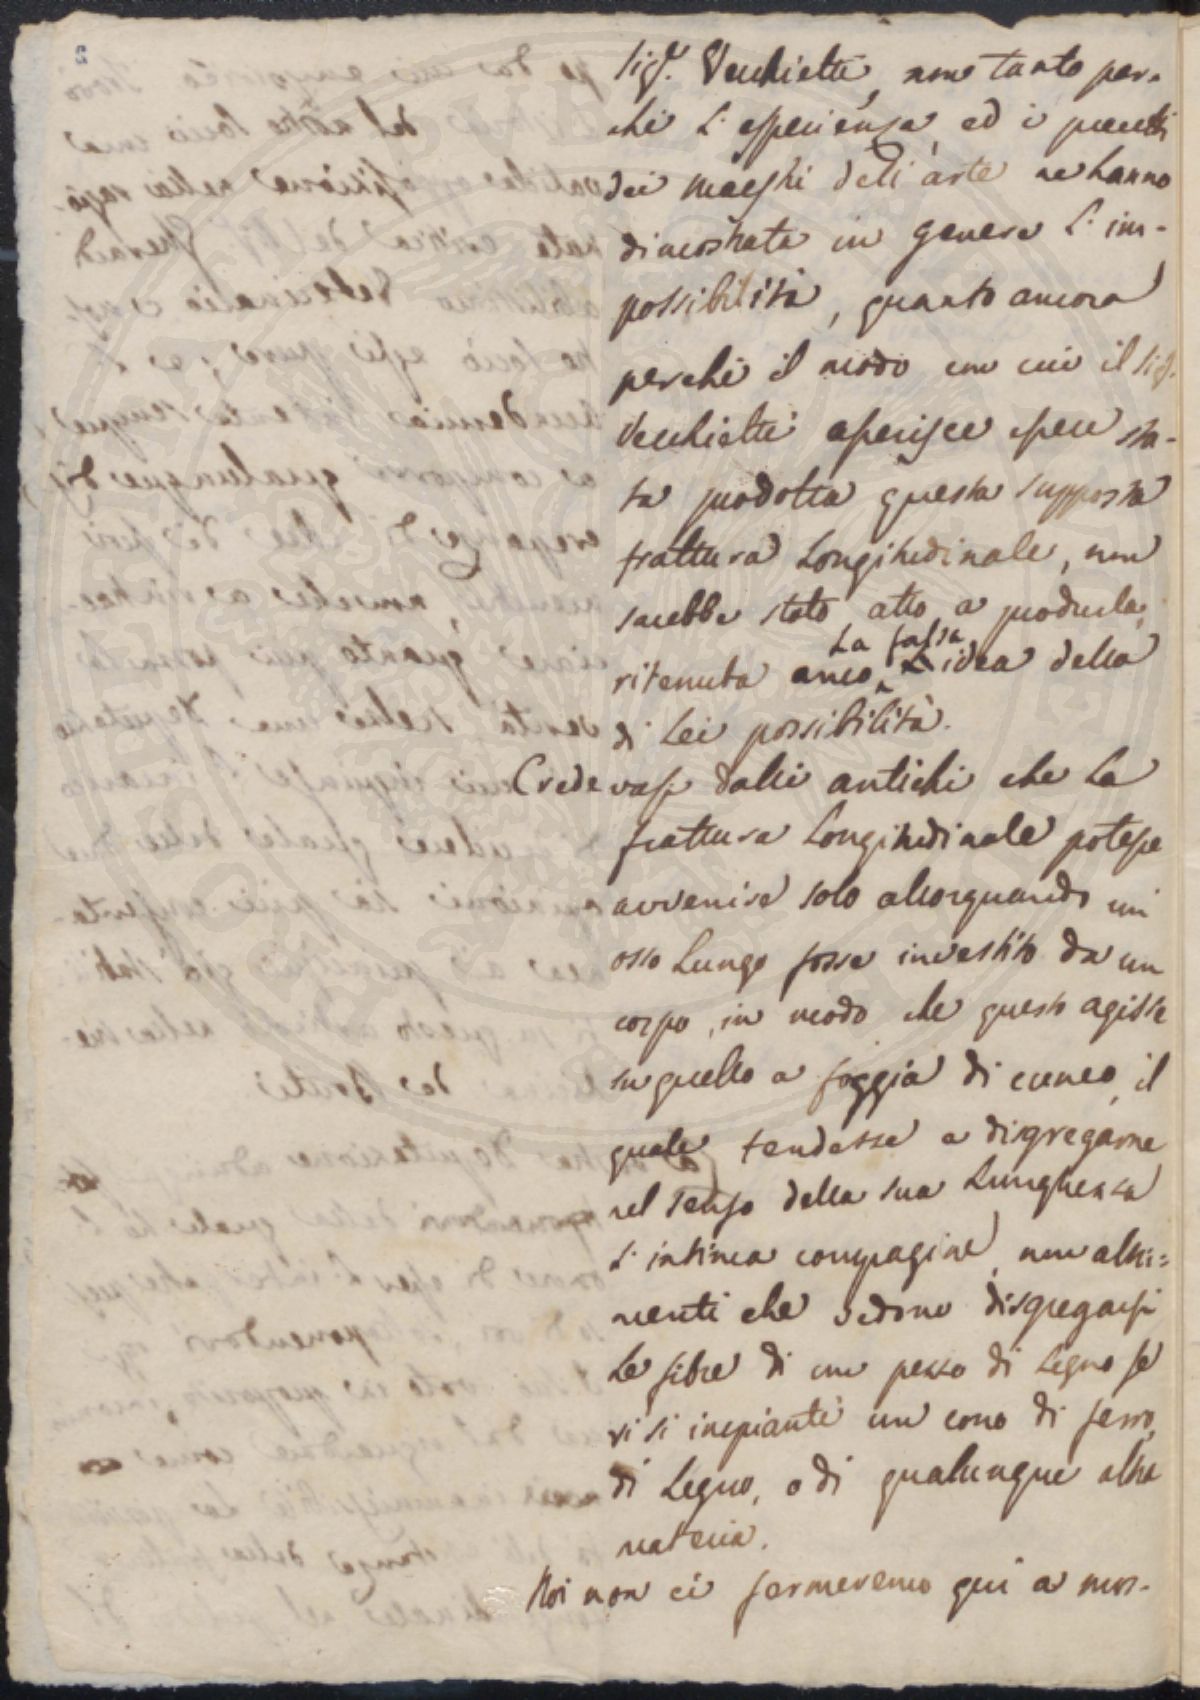 Sig.r Vecchietti, non tanto per-
chè l'esperienza, ed i precetti
dei maestri dell'arte ne hanno
dimostrata in genere l'im-
possibilità, quanto ancora
perchè il modo con cui il Sig.
Vecchietti asserisce esser sta-
ta prodotta questa supposta
frattura longitudinale, non
sarebbe stato atto a produrla,
ritenuta anco la falsa idea della
di lei possibilità.
Credevasi dalli antichi che la
frattura longitudinale potesse
avvenire solo allorquando un
osso lungo fosse investito da un
corpo, in modo che questo agisse
su quello a foggia di cuneo, il
quale tendesse a disgregarne
nel senso della sua lunghezza
l'intima compagine, non altri=
menti che vedono disgregarsi
le fibre di un pezzo di legno se
vi si impianti un cono di ferro,
di legno, o di qualunque altra
materia.
Noi non ci fermeremo qui a mos-